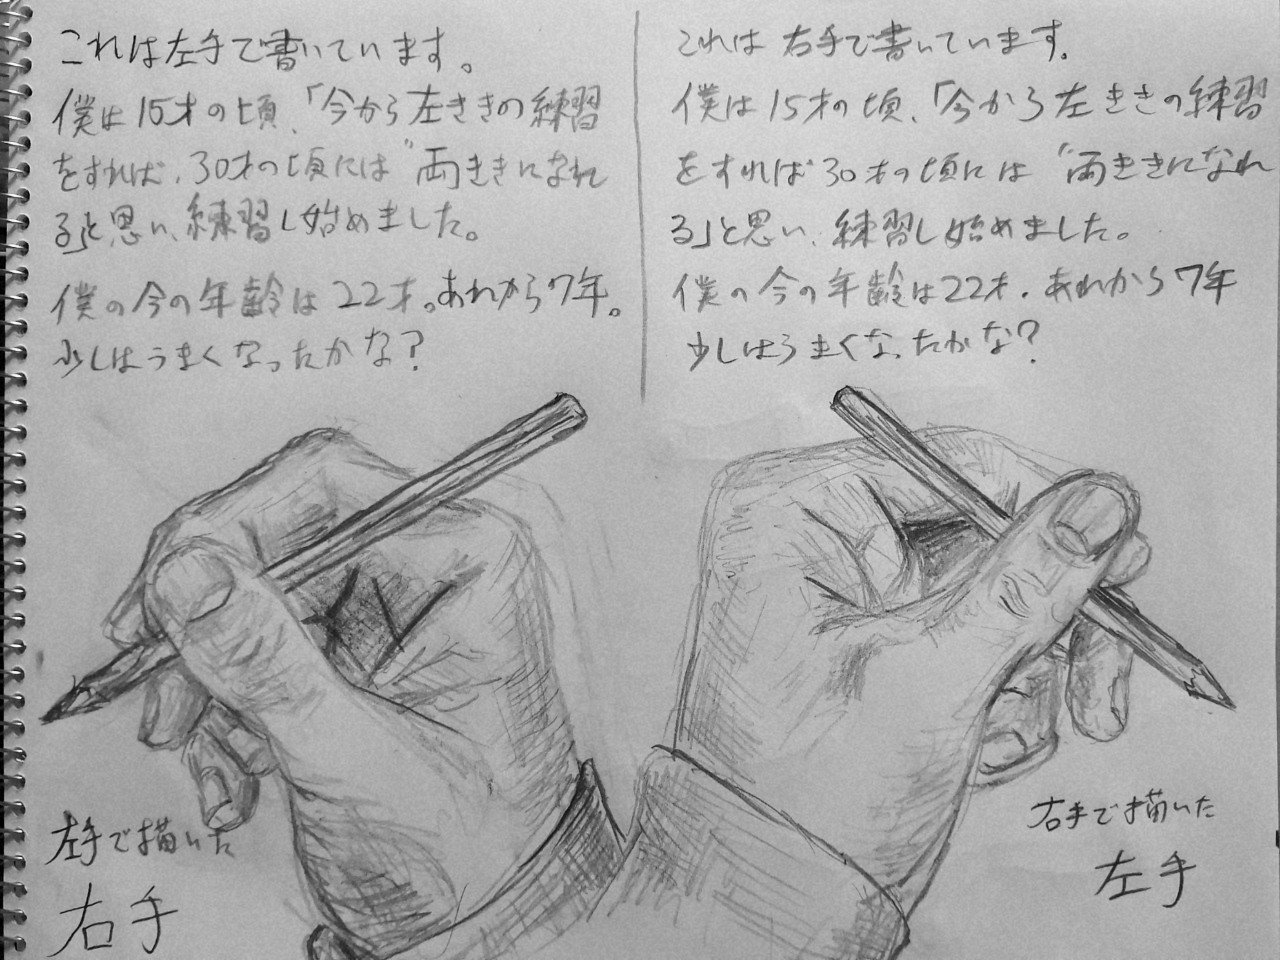 これは左手で書いています。
僕は15才の頃、「今から左ききの練習
をすれば、30才の頃には"両ききになれ
る」と思い、練習し始めました。
僕の今の年齢は22才。あれから7年。
少しはうまくなったかな?
これは右手で書いています。
僕は15才の頃、「今から左ききの練習
をすれば30才の頃には"両ききになれ
る」と思い、練習し始めました。
僕の今の年齢は22才.あれから7年
少しはうまくなったかな?
左手で描いた
右手
右手で描いた
左手